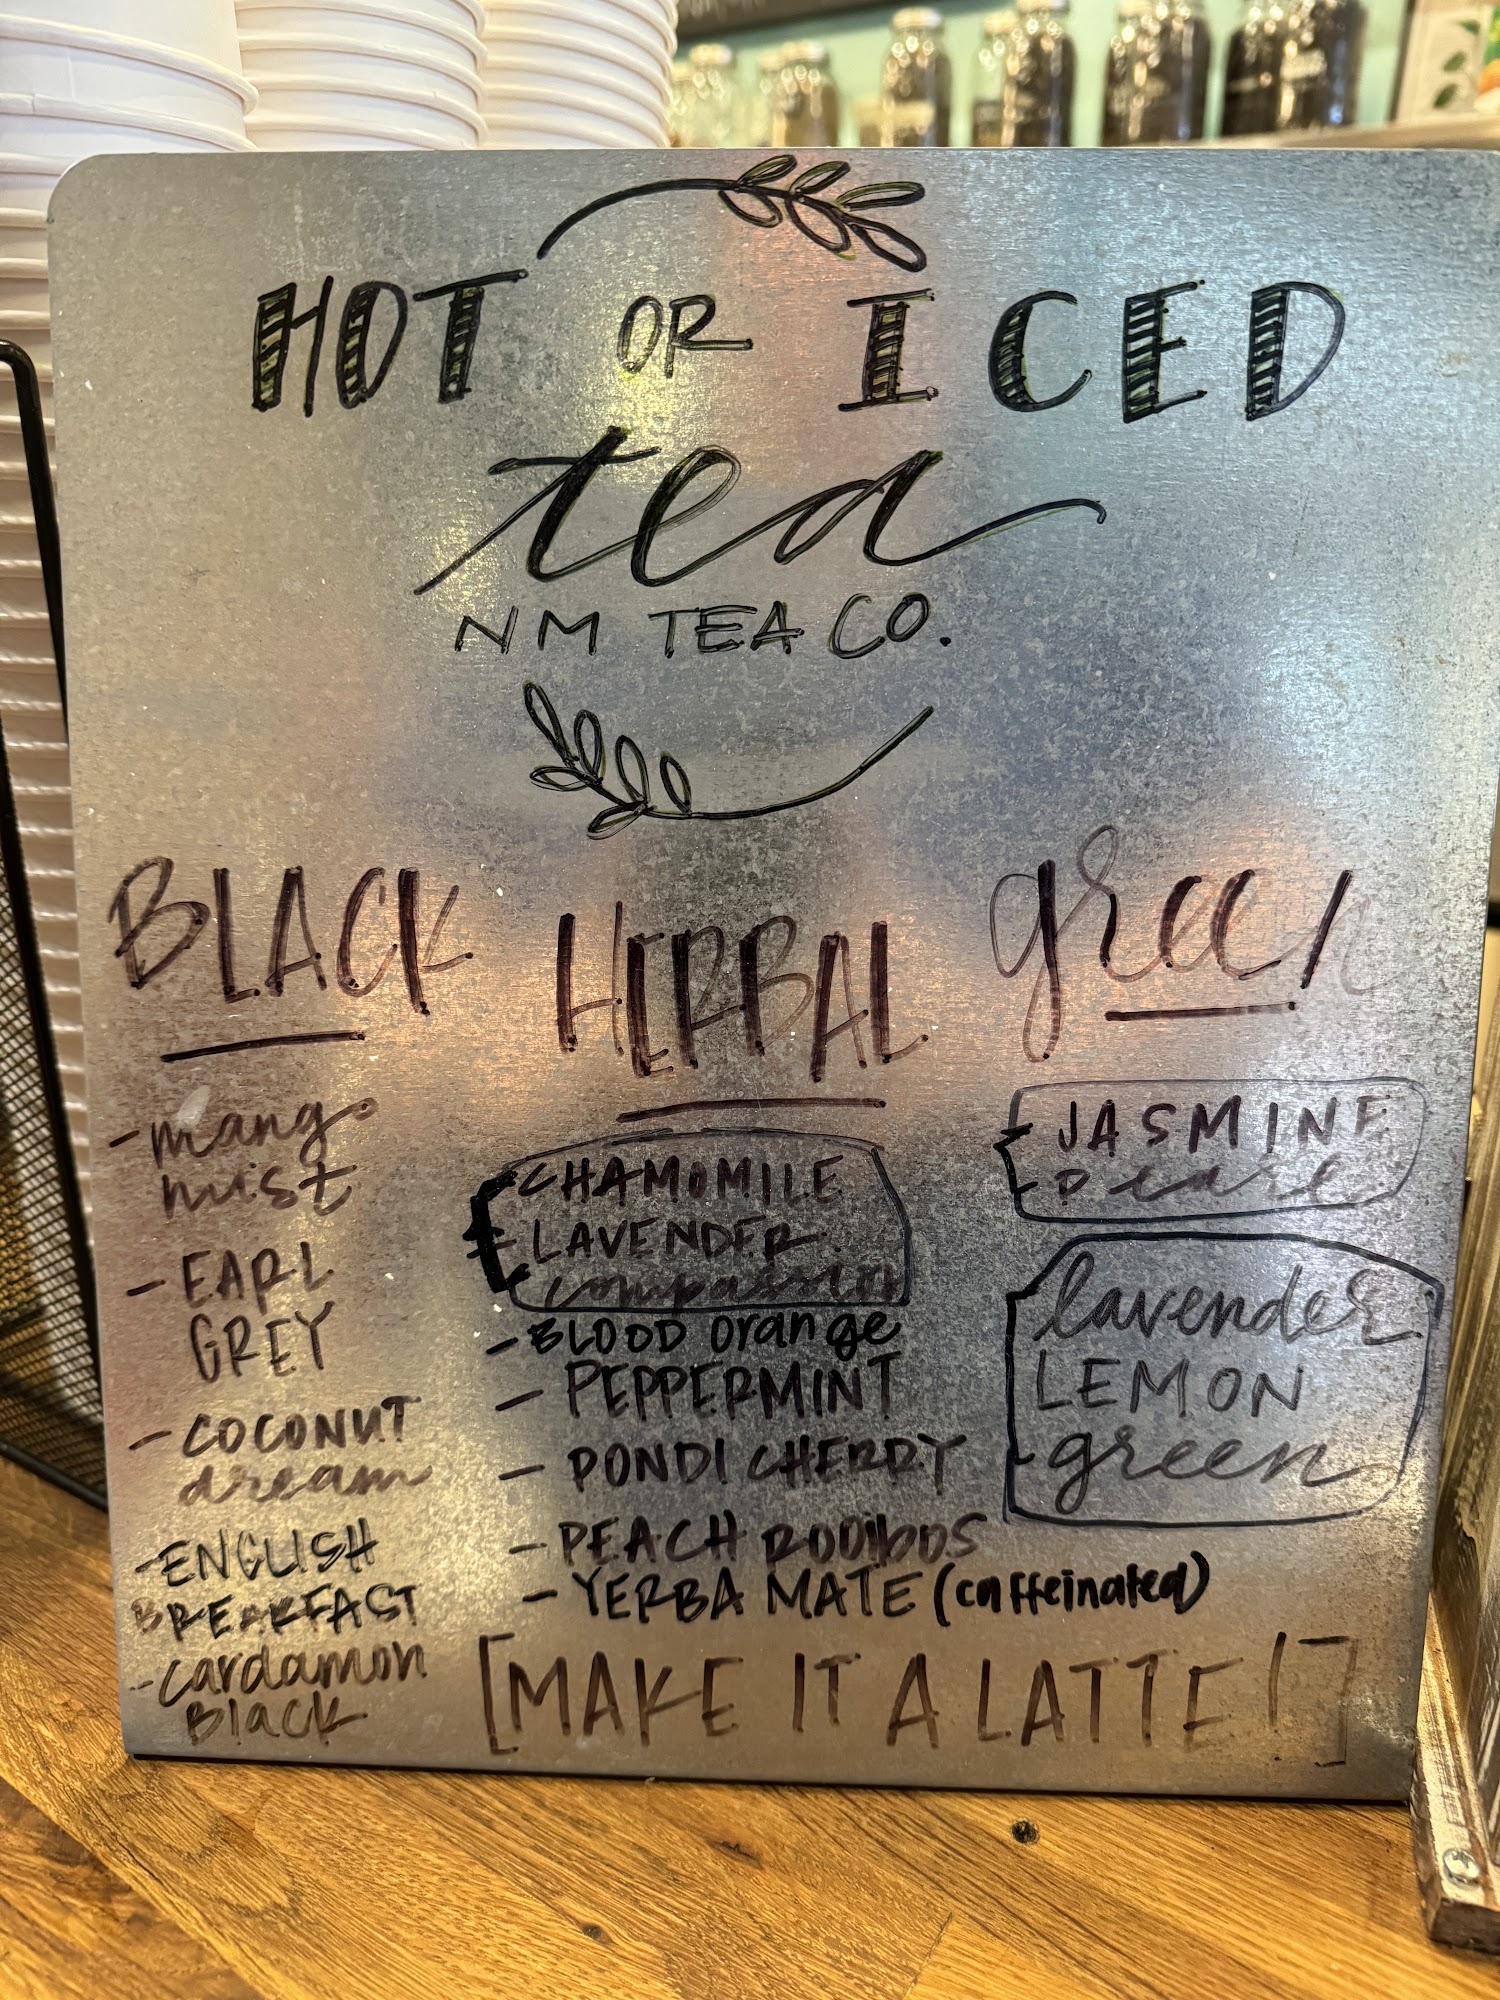 HOT OR ICED
tea
NM TEA CO.
BLACK
- mango
mist
- EARL
GREY
- COCONUT
dream
- ENGLISH
BREAKFAST
- cardamon
Black
HERBAL
- CHAMOMILE
LAVENDER
compassion
- BLOOD orange
- PEPPERMINT
- PONDICHERRY
- PEACH ROOIBOS
- YERBA MATE (caffeinated)
green
- JASMINE
pearl
lavender
LEMON
green
[MAKE IT A LATTE!]